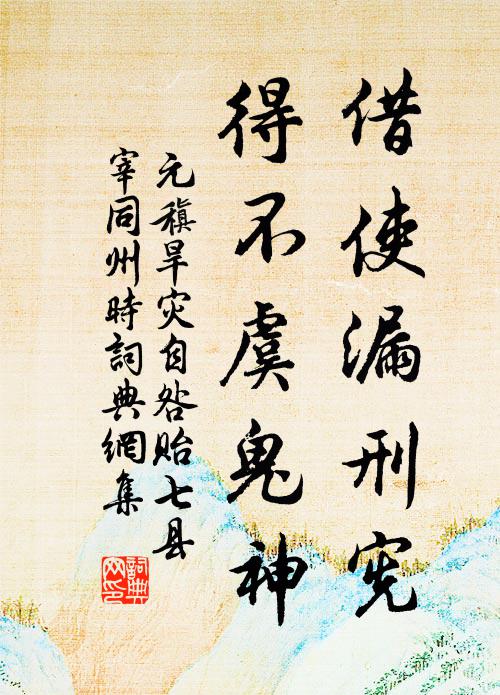 借使漏刑宪
得不虞鬼神
元稹旱灾自咎贻七县
宰同州时詞典網集
詞典网印